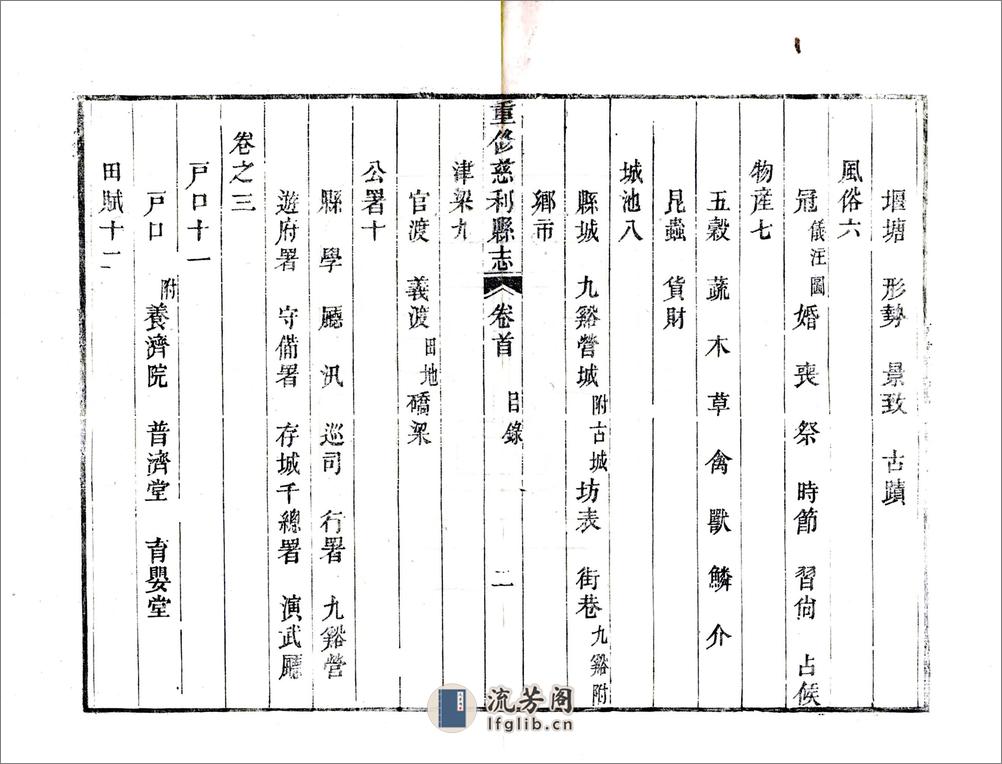 堰塘 形勢 景致 古蹟
風俗六
冠儀注圖 婚 喪 祭 時節 習尙 占候
物産七
五穀 蔬 木 草 禽 獸 鱗 介
昆蟲 貨財
城池八
縣城 九谿營城附古城 坊表 街巷九谿附
鄉市
重修慈利縣志 卷首 目錄 二
津梁九
官渡 義渡田地 礄梁
公署十
縣 學 廳 汛 巡司 行署 九谿營
遊府署 守備署 存城千總署 演武廳
卷之三
戸口十一
戸口 附養濟院 普濟堂 育嬰堂
田賦十二
流芳阁
lfglib.cn